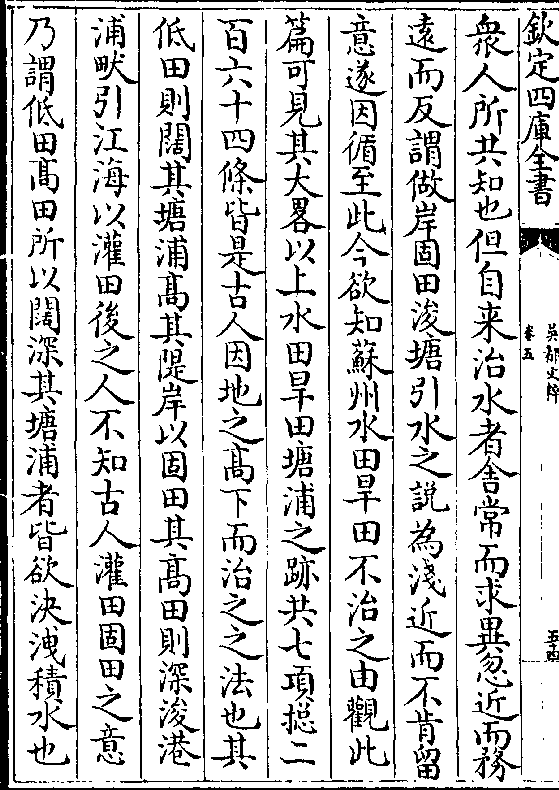 欽定四庫全書
吳都文粹
卷五
五十四
衆人所共知也但自来治水者舍常而求異忽近而務
逺而反謂做岸固田浚塘引水之説為淺近而不肯留
意遂因循至此今欲知蘇州水田旱田不治之由觀此
篇可見其大畧以上水田旱田塘浦之跡共七項揔二
百六十四條皆是古人因地之髙下而治之之法也其
低田則闊其塘浦髙其隄岸以固田其髙田則深浚港
浦畎引江海以灌田後之人不知古人灌田固田之意
乃謂低田髙田所以闊深其塘浦者皆欲決洩積水也